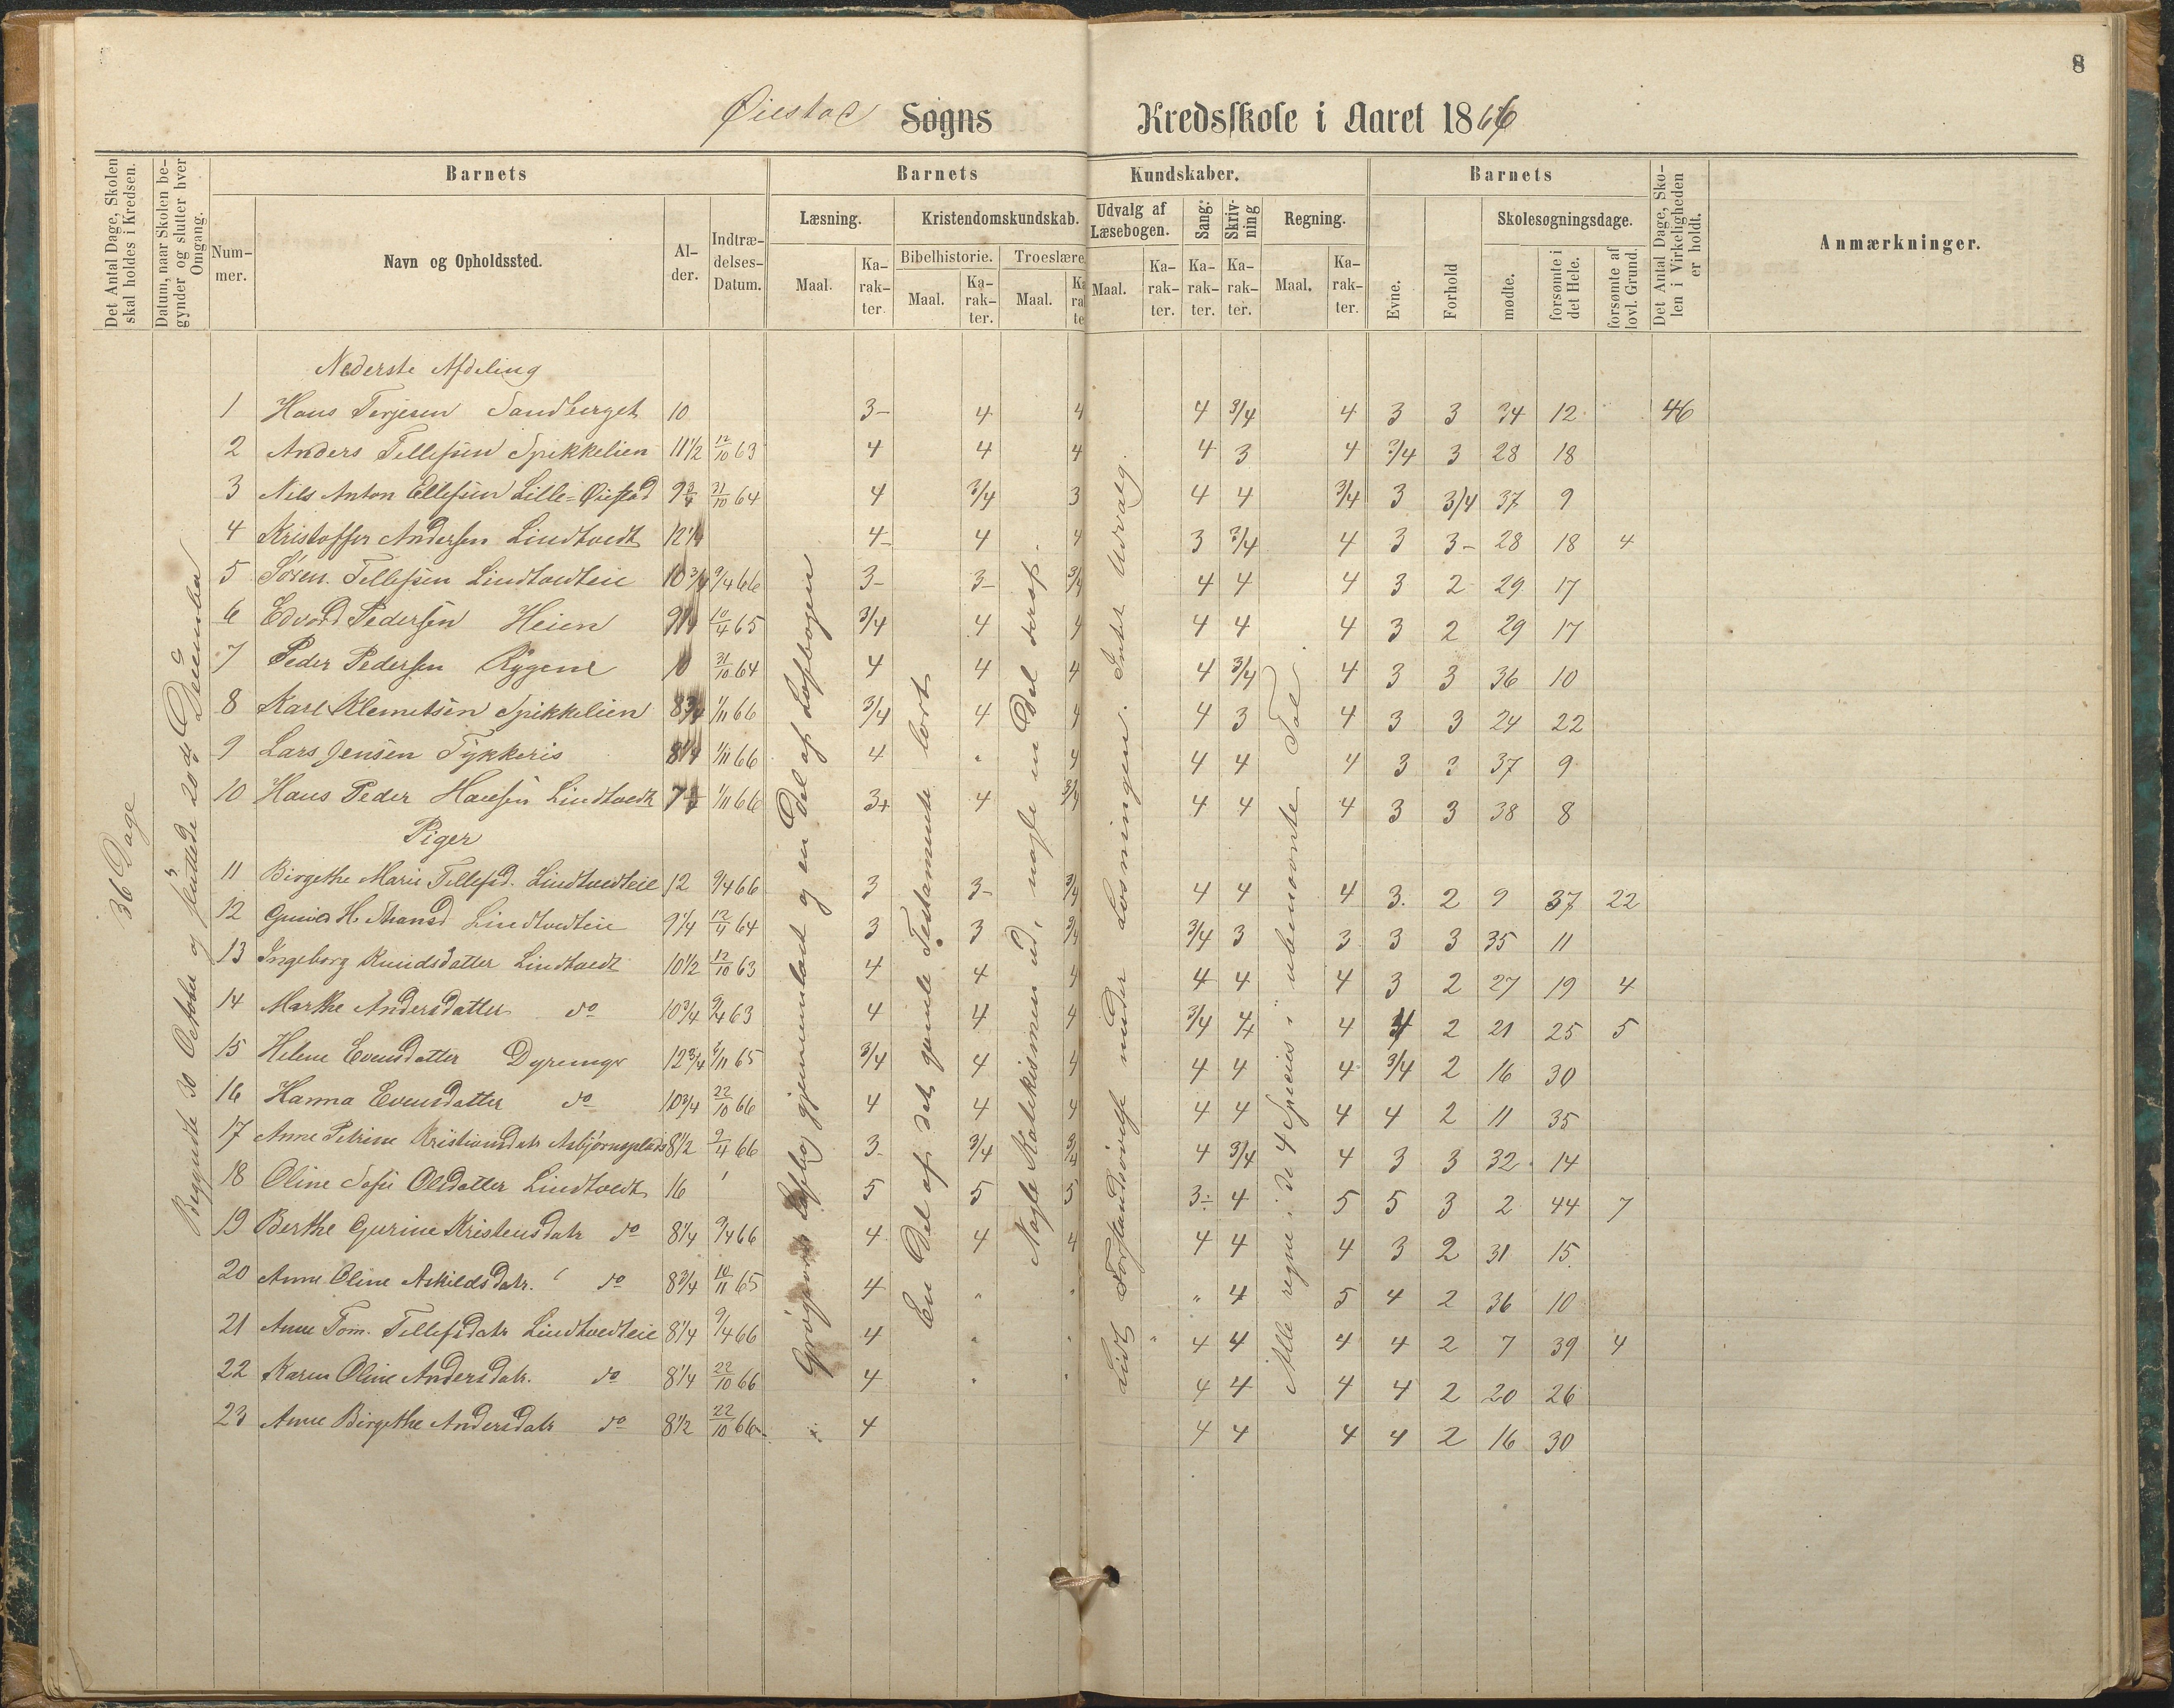 8
Øiestad Sogns Kredsskole i Aaret 1866
Det Antal Dage, Skolen skal holdes i Kredsen.
Datum, naar Skolen begynder og slutter hver Omgang.
Barnets
Nummer.
Navn og Opholdssted.
Alder.
Indtrædelses-Datum.
Barnets Kundskaber.
Læsning.
Maal.
Karakter.
Kristendomskundskab.
Bibelhistorie.
Maal.
Karakter.
Troeslære
Maal.
Udvalg af Læsebogen.
Maal.
Karakter.
Sang:
Karakter.
Skrivning
Karakter.
Regning.
Maal.
Karakter.
Barnets
Evne.
Forhold
Skolesøgningsdage.
mødte.
forsømte i det Hele.
forsømte af lovl. Grund.
Det Antal Dage, Skolen i Virkeligheden er holdt.
Anmærkninger.
36 Dage
Begyndte 30 October og sluttede 20de December
Læsebog gjennemlæst og en Del af Læsebogen
En Del af det gamle Testamente lært
Nogle Katekismen ud, nogle en Del deraf.
Lidt Forstandsøvelse under Læsningen. Intet Udvalg.
Alle regne i de 4 Species i ubenævnte Tal.
Nederste Afdeling
1 Hans Terjesen Sandberget 10 3- 4 4 4 3/4 4 3 3 34 12 46
2 Anders Tellefsen Spikkelien 11 1/2 12/10 63 4 4 4 4 3 4 3/4 3 28 18
3 Nils Anton Ellefsen Lille-Øiestad 9 3/4 31/10 64 4 3/4 3 4 4 3/4 3 3/4 37 9
4 Kristoffer Andersen Lindtvedt 12 4- 4 4 3 3/4 4 3 3- 28 18 4
5 Søren Tellefsen Lindtvedteie 10 3/4 9/4 66 3- 3- 3/4 4 4 4 3 2 29 17
6 Edvard Pedersen Heien 9 10/4 65 3/4 4 4 4 4 4 3 2 29 17
7 Peder Pedersen Rygene 10 31/10 64 4 4 4 4 3/4 4 3 3 36 10
8 Karl Klemetsen Spikkelien 8 3/4 1/11 66 3/4 4 4 4 3 4 3 3 24 22
9 Lars Jensen Tykkeris 8 1/4 1/11 66 4 " 4 4 4 4 3 3 37 9
10 Hans Peder Hansen Lindtvedt 7 1/11 66 3+ 4 3/4 4 4 4 3 3 38 8
Piger
11 Birgethe Marie Tellefsd. Lindtvedteie 12 9/4 66 3 3- 3/4 4 4 4 3. 2 9 37 22
12 H. Lindtvedteie 9 1/4 12/11 64 3 3 3/4 3/4 3 3 3 3 35 11
13 Ingeborg Knudsdatter Lindtvedt 10 1/2 12/10 63 4 4 4 4 4 4 3 2 27 19 4
14 Marthe Andersdatter do 10 3/4 9/4 63 4 4 4 3/4 4 4 4 2 21 25 5
15 Helene Evensdatter 12 3/4 1/11 65 3/4 4 4 4 4 4 3/4 2 16 30
16 Hanna Evensdatter do 10 3/4 22/10 66 4 4 4 4 4 4 4 2 11 35
17 Anne Petrine Kristiansdatr Asbjørnsplads 8 1/2 9/4 66 3- 3/4 3/4 4 3/4 4 3 3 32 14
18 Oline Sofie Olsdatter Lindtvedt 16 5 5 5 3÷ 4 5 5 3 2 44 7
19 Berthe Gurine Kristensdatr do 8 1/4 9/4 66 4 4 4 4 4 4 3 2 31 15
20 Anne Oline Askildsdatr. do 8 3/4 10/11 65 4 " " " 4 5 4 2 36 10
21 Anne Tom. Tellefsdatr Lindtvedteie 8 1/4 9/4 66 4 " " " 4 4 4 4 2 7 39 4
22 Karen Oline Andersdatr. do 8 1/4 22/10 66 4 " " 4 4 4 4 2 20 26
23 Anne Birgethe Andersdatr do 8 1/2 22/10 66 4 4 4 4 4 2 16 30